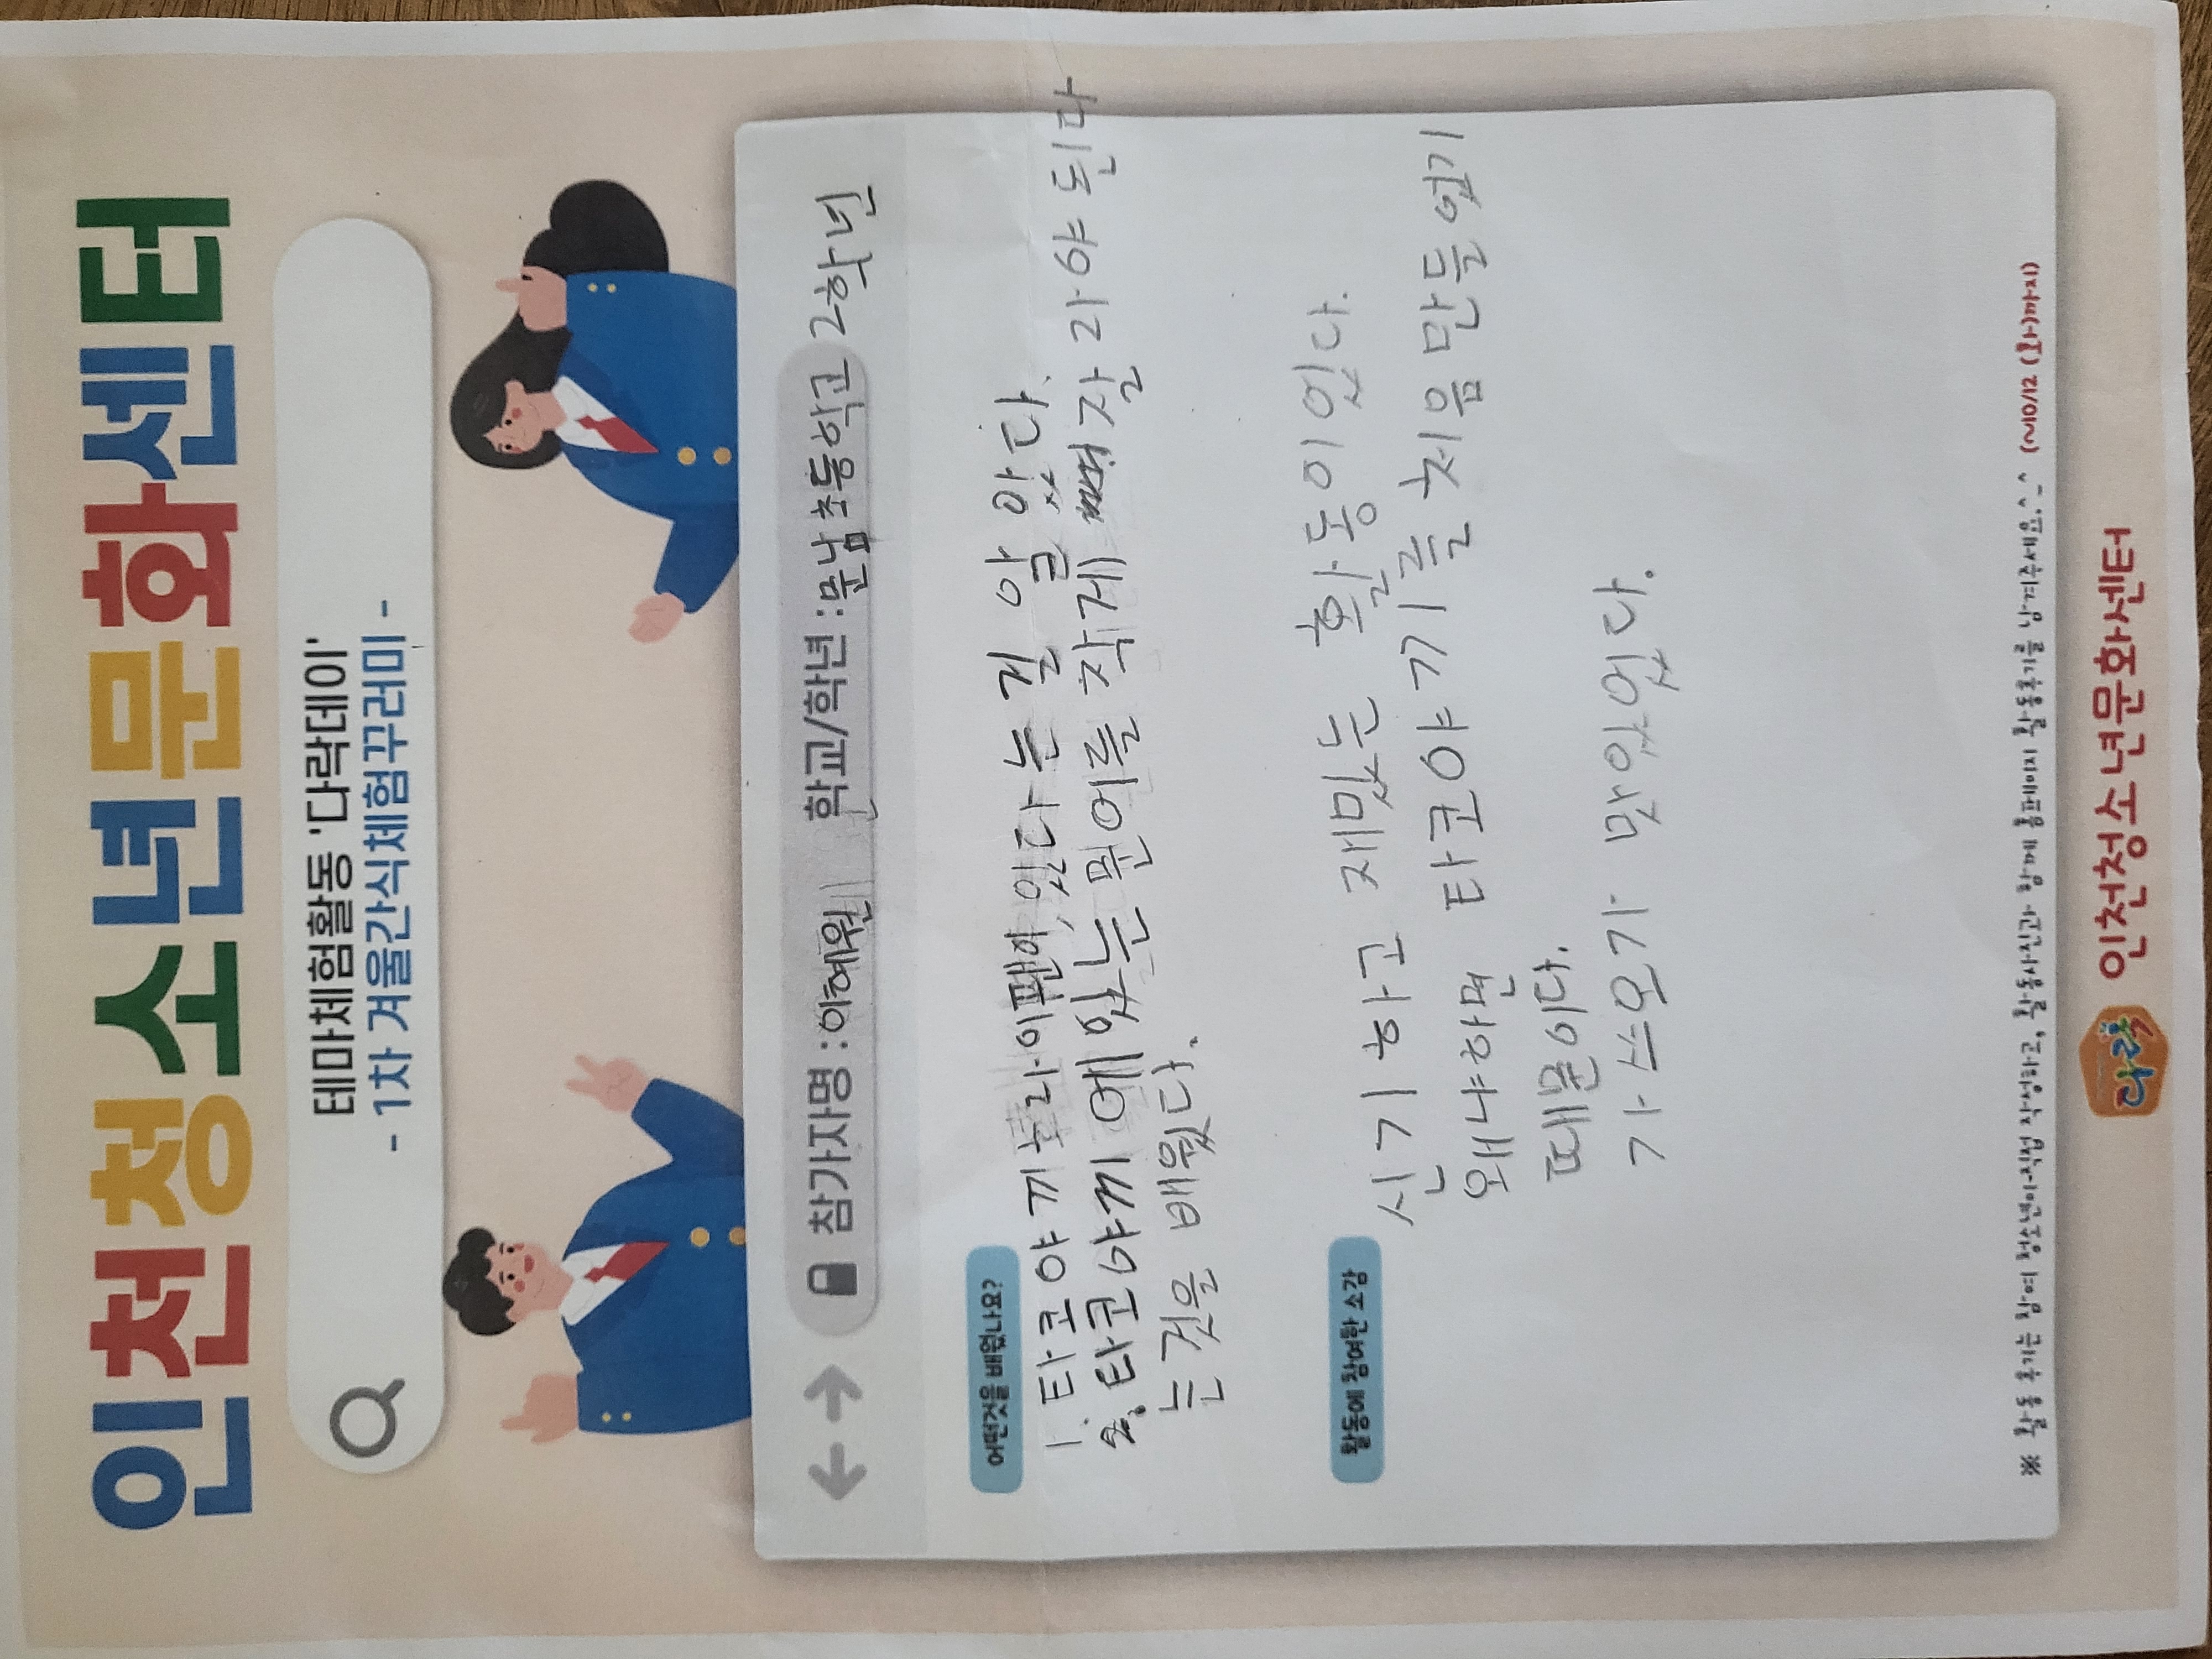 인천청소년문화센터
테마체험활동 '다락데이'
- 1차 겨울간식체험꾸러미 -
참가자명 : 이혜원 학교/학년 : 문남초등학교 2학년
어떤것을 배웠나요?
1. 타코야끼 후라이팬이 있다는 걸 알았다.
2. 타코야끼에 있는 문어를 작게 잘라야 된다
는 것을 배웠다.
활동에 참여한 소감
신기하고 재밌는 활동이었다.
왜냐하면 타코야기를 처음 만들었기
때문이다.
가쓰오가 맛있었다.
※ 활동 후기는 참여 청소년이 직접 작성하고, 활동사진과 함께 홈페이지 활동후기를 남겨주세요.^_^ (~10/12 (화)까지)
다락 인천청소년문화센터